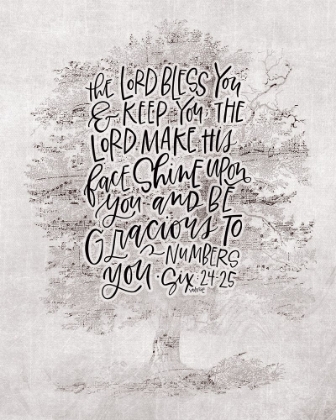 the LORD BLESS YOU
& KEEP YOU THE
LORD MAKE HIS
face Shine UPON
YOU AND BE
Gracious To
you · NUMBERS
Six : 24-25